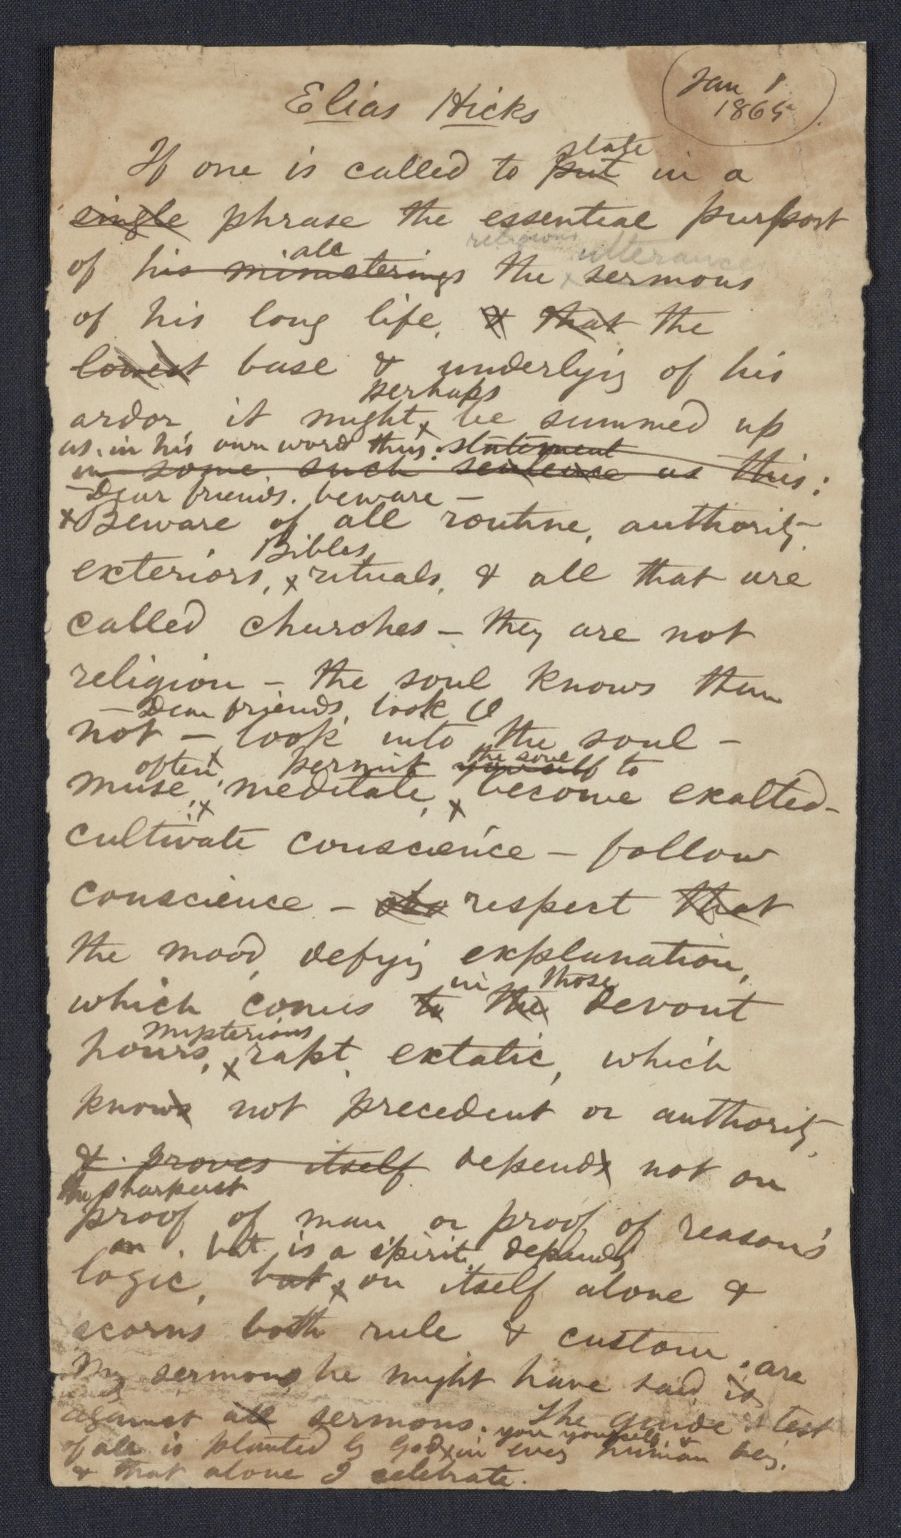 Elias Hicks
Jan 1
1865
state
If one is called to put in a
single phrase the essential purport
religious utterances
all
of his ministerings the sermons
of his long life, & that the
lowest base & underlyig of his
perhaps
ardor, it might be summed up
as, in his own words thus: statement
in some such sentence as this:
– Dear friends, beware –
Beware of all routine, authority,
Bibles,
exteriors, rituals, & all that are
called churches – they are not
religion – the soul knows them
– Dear friends, look O
not – look into the soul –
often permit yourself the soul to
muse, meditate, become exalted –
cultivate conscience – follow
conscience – respect that
the mood, defyig explanation,
in those
which comes to the devout
mysterious
hours, rapt, extatic, which
knows not precedent or authority,
& proves itself depends not on
the sharpest
proof of man or proof of reason's
or but is a spirit depends
logic, but on itself alone &
scorns both rule & custom.
My sermons he might have said, is are
against all sermons. The guide & test
you yourself &
of all is planted by God in every human beig.
& that alone I celebrate.